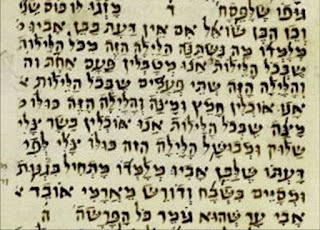 גופו שלפסח ד מזגו לו כוס שני
וכן הבן שואל אם אין דעת בבן אביו
מלמדו מה נשתנה הלילה הזה מכל הלילות
שבכל הלילות אנו מטבילין פעם אחת וה
והלילה הזה שתי פעמים שבכל הלילות א
אנו אוכלין חמץ ומצה והלילה הזה כולו מ
מצה שבכל הלילות אנו אוכלין בשר צלי
שלוק ומבושל הלילה הזה כולו צלי לפי
דעתו שלבן אביו מלמדו מתחיל בגנות
ומסיים בשבח ודורש מארמי אובד א
אבי עד שהוא גומר כל הפרשה ה